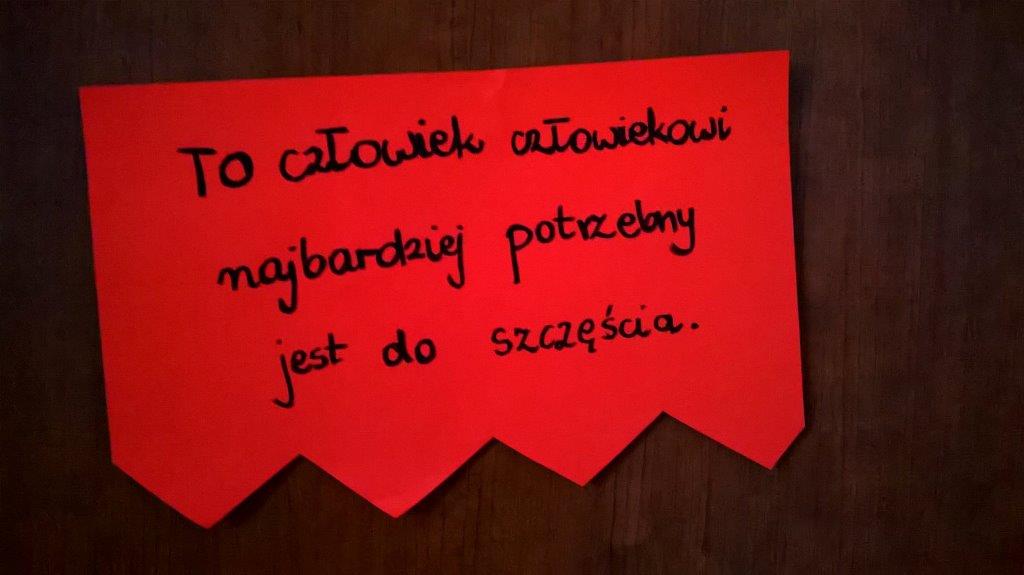 To człowiek człowiekowi
najbardziej potrzebny
jest do szczęścia.